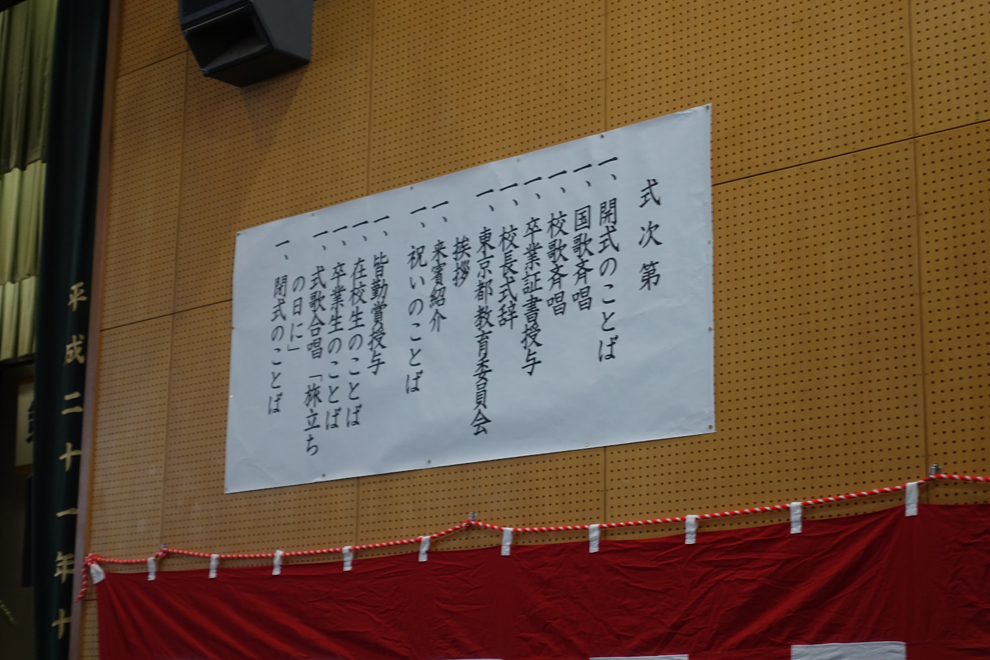 式次第
一、開式のことば
一、国歌斉唱
一、校歌斉唱
一、卒業証書授与
一、校長式辞
一、東京都教育委員会
挨拶
一、来賓紹介
一、祝いのことば
一、皆勤賞授与
一、在校生のことば
一、卒業生のことば
一、式歌合唱「旅立ち
の日に」
一、閉式のことば
平成二十一年十